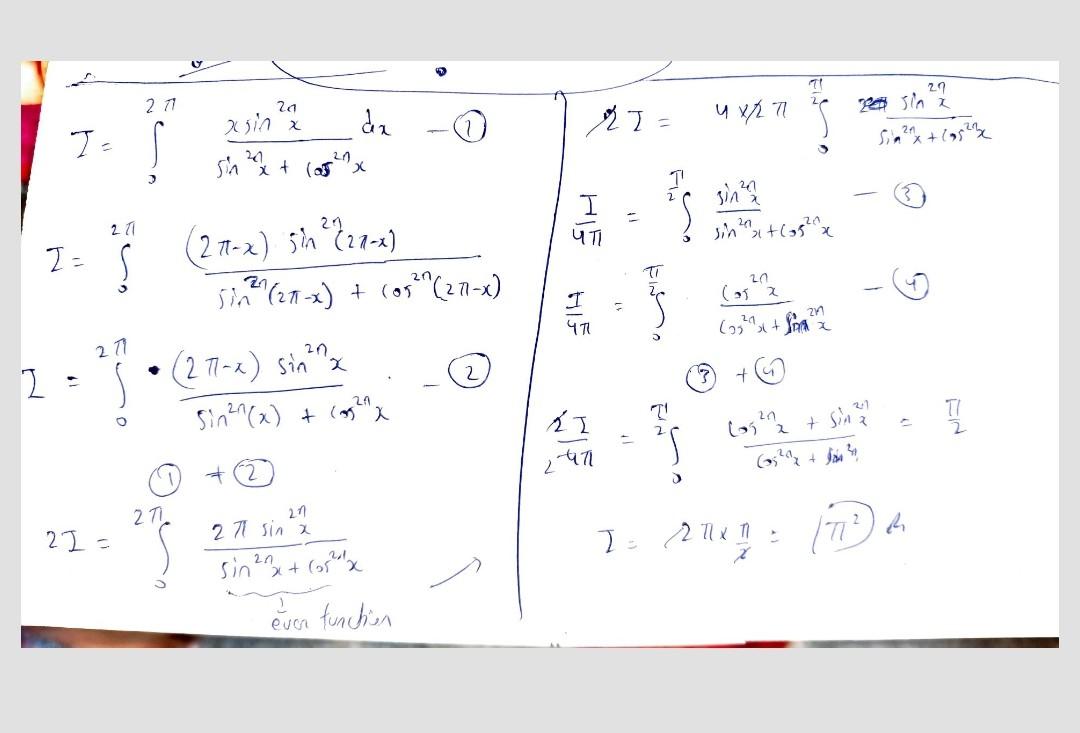 I = ∫₀^{2π} x sin^{2n} x / (sin^{2n} x + cos^{2n} x) dx — ①
I = ∫₀^{2π} (2π-x) sin^{2n}(2π-x) / (sin^{2n}(2π-x) + cos^{2n}(2π-x))
I = ∫₀^{2π} (2π-x) sin^{2n} x / (sin^{2n}(x) + cos^{2n} x) — ②
① + ②
2I = ∫₀^{2π} 2π sin^{2n} x / (sin^{2n} x + cos^{2n} x)
even function
2I = 4×2π ∫₀^{π/2} sin^{2n} x / (sin^{2n} x + cos^{2n} x)
I/4π = ∫₀^{π/2} sin^{2n} x / (sin^{2n} x + cos^{2n} x) — ③
I/4π = ∫₀^{π/2} cos^{2n} x / (cos^{2n} x + sin^{2n} x) — ④
③ + ④
2I/4π = ∫₀^{π/2} (cos^{2n} x + sin^{2n} x) / (cos^{2n} x + sin^{2n}) = π/2
I = 2π × π/2 = π²